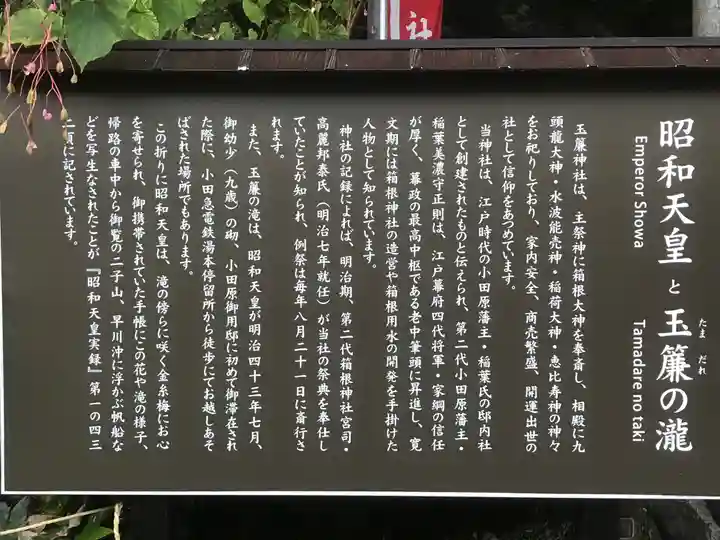 社
昭和天皇と玉簾の瀧
たまだれ
Emperor Showa
Tamadare no taki
玉簾神社は、主祭神に箱根大神を奉斎し、相殿に九
頭龍大神・水波能売神・稲荷大神・恵比寿神の神々
をお祀りしており、家内安全、商売繁盛、開運出世の
社として信仰をあつめています。
当神社は、江戸時代の小田原藩主・稲葉氏の邸内社
として創建されたものと伝えられ、第二代小田原藩主・
稲葉美濃守正則は、江戸幕府四代将軍・家綱の信任
が厚く、幕政の最高中枢である老中筆頭に昇進し、寛
文期には箱根神社の造営や箱根用水の開発を手掛けた
人物として知られています。
神社の記録によれば、明治期、第二代箱根神社宮司・
高麗邦泰氏（明治七年就任）が当社の祭典を奉仕し
ていたことが知られ、例祭は毎年八月二十一日に斎行さ
れます。
また、玉簾の滝は、昭和天皇が明治四十三年七月、
御幼少（九歳）の砌、小田原御用邸に初めて御滞在され
た際に、小田急電鉄湯本停留所から徒歩にてお越しあそ
ばされた場所でもあります。
この折りに昭和天皇は、滝の傍らに咲く金糸梅にお心
を寄せられ、御携帯されていた手帳にこの花や滝の様子、
帰路の車中から御覧の二子山、早川沖に浮かぶ帆船な
どを写生なされたことが『昭和天皇実録』第一の四三
二頁に記されています。